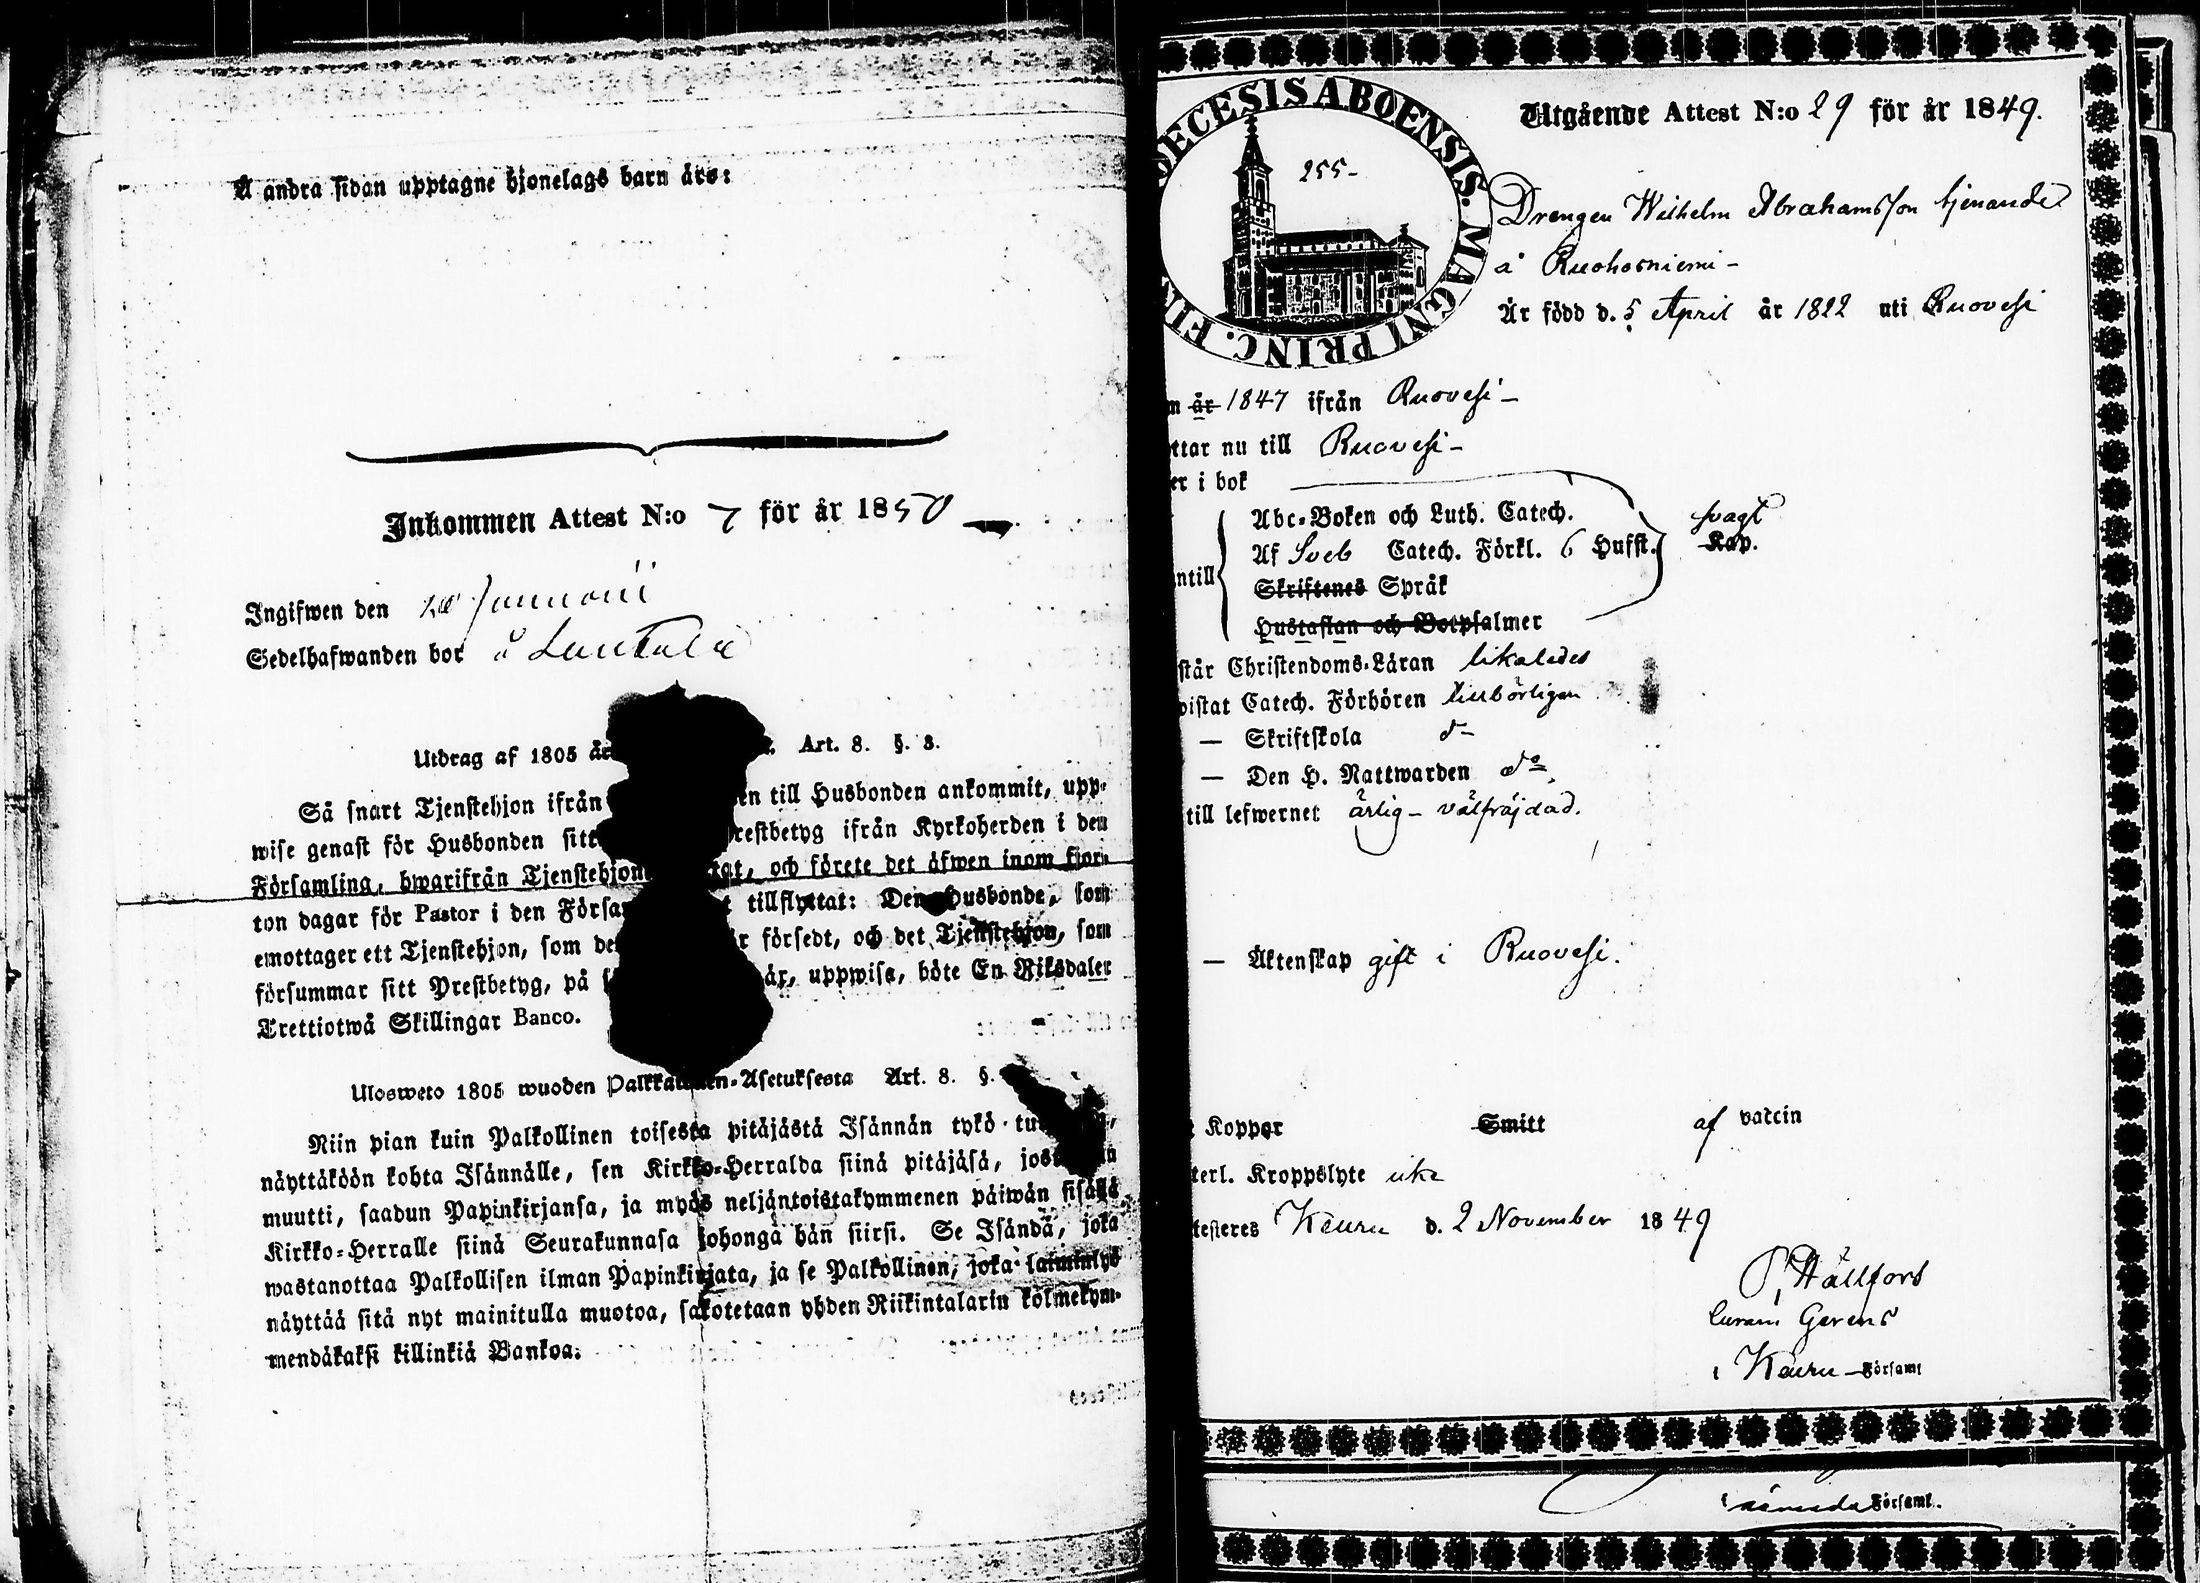 Å andra sidan upptagne hjonelags barn äro:
Inkommen Attest N:o 7 för år 1850
Ingifwen den Januarii
Sedelhafwanden bor å
Utdrag af 1805 Art. 8. §. 3.
Så snart Tjenstehjon ifrån till Husbonden ankommit, upp-
wise genast för Husbonden sitt Prestbetyg ifrån Kyrkoherden i den
Församling, hwarifrån Tjenstehjon och förete det äfwen inom fjor-
ton dagar för Pastor i den tillflyttat: Den Husbonde, som
emottager ett Tjenstehjon, som försedt, och det Tjenstehjon, som
försummar sitt Prestbetyg, på uppwisa, böte En Riksdaler
Trettiotwå Skillingar Banco.
Ulosweto 1805 wuoden Palkkalisten-Asetuksesta Art. 8. §.
Niin pian kuin Palkollinen toisesta pitäjästä Isännän tykö
näyttäköön kohta Isännälle, sen Kirkko-Herralda siinä pitäjäsä,
muutti, saadun Papinkirjansa, ja myös neljäntoistakymmenen päiwän sisällä
Kirkko-Herralle siinä Seurakunnasa johonga hän siirsi. Se Isändä, joka
wastanottaa Palkollisen ilman Papinkirjata, ja se Palkollinen, joka laiminlyö
näyttää sitä nyt mainitulla muotoa, sakotetaan yhden Riikintalarin kolmekym-
mendäkaksi killinkiä Bankoa.
DIOECESIS ABOENSIS. MAGNI PRINC. FIN
255-
Utgående Attest N:o 29 för år 1849.
Drengen Wilhelm Abrahamsson tjenande
å Ruohoniemi -
Är född d. 5 April år 1822 uti Ruovesi
år 1847 ifrån Ruovesi -
ttar nu till Ruovesi -
er i bok
Abc-Boken och Luth. Catech. svagt
Af Sveb Catech. Förkl. 6 Hufst. Kap.
ntill
Skriftenes Språk
Hustaflan och Botpsalmer
står Christendoms-Läran likaledes
vistat Catech. Förhören tillbörligen
— Skriftskola d-
— Den H. Nattwarden do.
till lefwernet ärlig - välfräjdad.
— Äktenskap gift i Ruovesi.
Koppor Smitt af vaccin
terl. Kroppslyte icke
testeres Keuru d. 2 November 1849
P. Hällfors
Curam Gerens
i Keuru Församl
i Församl.